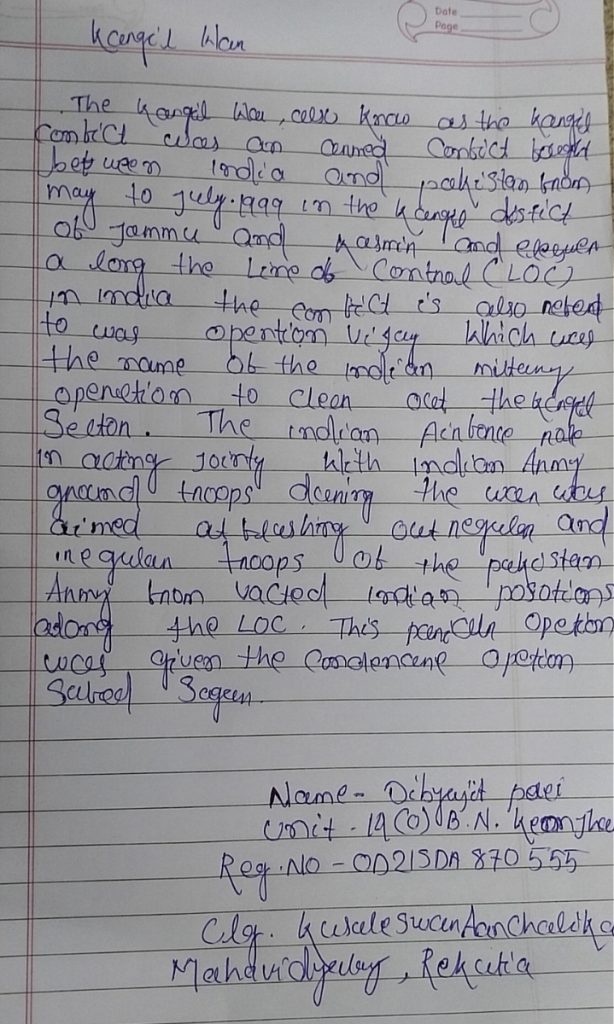 Date
Page
Kargil War
The Kargil War, also know as the Kargil
Conflict was an armed Conflict fought
between India and pakistan from
may to july.1999 in the Kargil distict
of Jammu and Kasmir and
a long the Line of Control (LOC)
in india the conflict is also referd
to was opertion Vijay Which was
the name of the indian miltary
operation to clear out the Kargil
Sector. The indian Airforce role
in acting jointy With indian Army
ground troops during the war was
aimed at flushing out regular and
iregular troops of the pakistan
Army from vacted indian posotions
adong the LOC. This Opertion
was given the opertion
Safed Sagar.
Name - Dibyajit
Unit - 19 (O) B.N.
Reg.NO - OD21SDA 870555
Clg. KusaleswarAanchalika